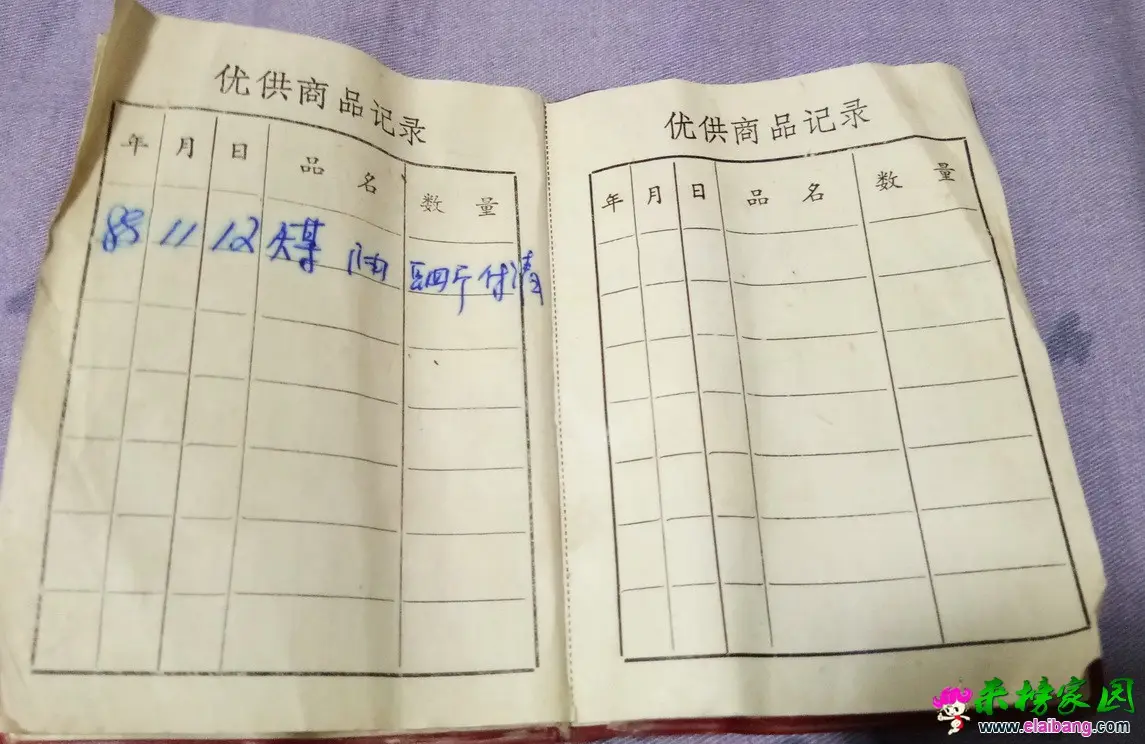 优供商品记录
年 月 日 品 名 数 量
11 12 煤 油 四斤付清
优供商品记录
年 月 日 品 名 数 量
来榜家园
www.elaibang.com